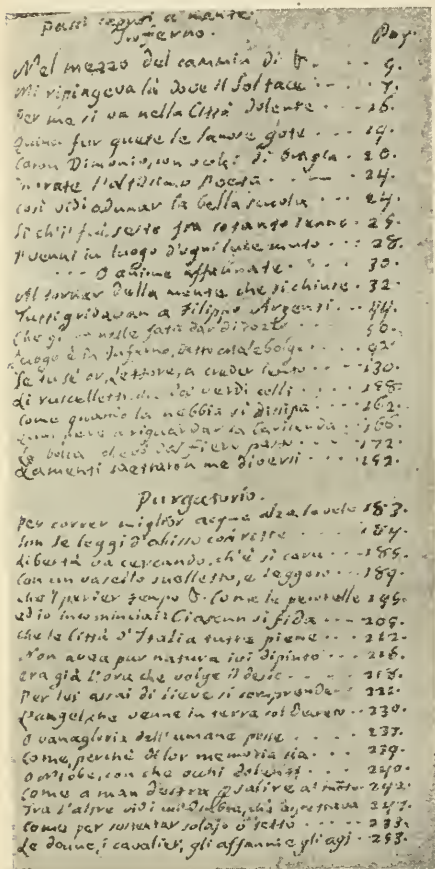 Passi a mente.
Inferno. Pag.
Nel mezzo del cammin di &. 9.
Mi ripingeva là dove il Sol tace
Per me si va nella Città dolente 16.
Quinci fur quete le lanose gote 19.
Caron Dimonio, con occhi di bragia 20.
l'altissimo Poeta 24.
Così vidi adunar la bella scuola 24.
Sì ch'i' fui sesto fra cotanto senno 25.
I' venni in luogo d'ogni luce muto 28.
O anime affannate 30.
Al tornar della mente, che si chiuse 32.
Tutti gridavan a Filippo Argenti 44.
Che nelle fata dar di cozzo
Luogo è in Inferno, detto malebolge 92.
Se tu se' or, lettore, a creder lento 130.
Li ruscelletti, che verdi colli
Come quando la nebbia si dissipa 162.
a riguardar la Carisenda 166.
La bocca dal fiero pasto 172.
Lamenti saettaron me diversi
Purgatorio.
Per correr miglior acqua alza le vele 183.
Son le leggi d'abisso così rotte 184.
Libertà va cercando, ch'è sì cara 185.
Con un vasello snelletto, e leggero 189.
che 'l perder tempo &. Come le pecorelle
ed io incominciai: Ciascun si fida 205.
che le Città d'Italia tutte piene 212.
Non avea pur natura ivi dipinto
Era già l'ora che volge il desio
Per lei assai di lieve si comprende 222.
L'angel, che venne in terra col decreto 230.
O vanagloria dell'umane posse 237.
Come, perchè di lor memoria sia 239.
O Niobe, con che occhi dolenti 240.
Come a man destra per salire al monte 242.
Tra l'altre vidi un'Ombra, ch' aspettava 247.
Come per sostentar solajo o tetto 233.
Le donne, i cavalier, gli affanni e gli agi 253.